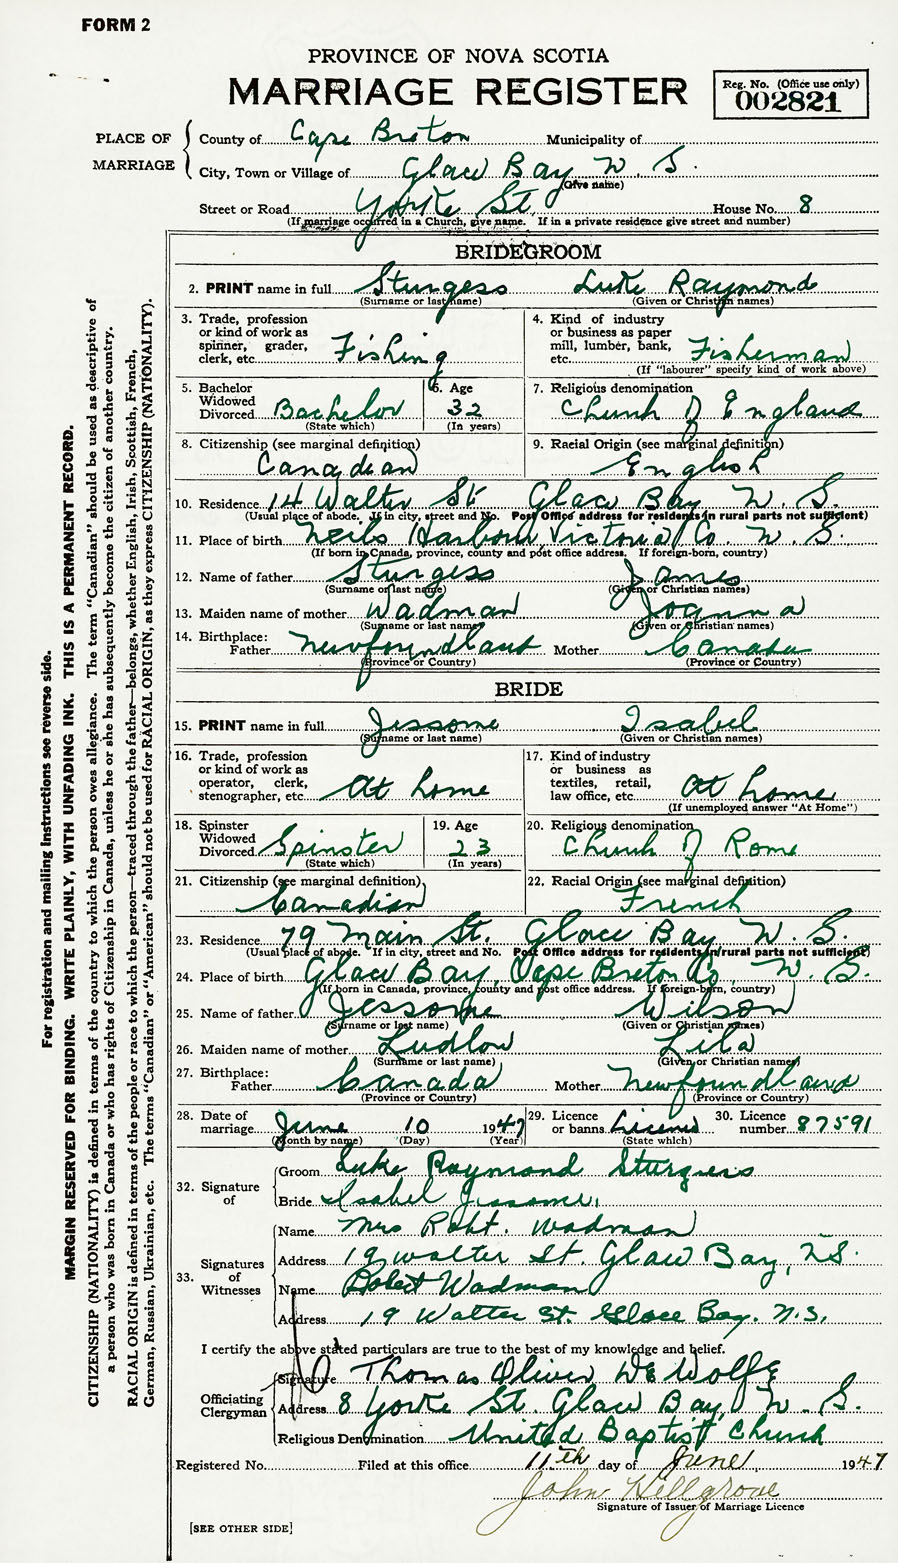 FORM 2
PROVINCE OF NOVA SCOTIA
MARRIAGE REGISTER
Reg. No. (Office use only)
002821
PLACE OF MARRIAGE
County of Cape Breton Municipality of
City, Town or Village of Glace Bay N. S.
(Give name)
Street or Road Yorke St. House No. 8
(If marriage occurred in a Church, give name. If in a private residence give street and number)
BRIDEGROOM
2. PRINT name in full Sturgess Luke Raymond
(Surname or last name) (Given or Christian names)
3. Trade, profession or kind of work as spinner, grader, clerk, etc. Fishing
4. Kind of industry or business as paper mill, lumber, bank, etc. Fisherman
(If "labourer" specify kind of work above)
5. Bachelor Widowed Divorced Bachelor
(State which)
6. Age 32
(In years)
7. Religious denomination
Church of England
8. Citizenship (see marginal definition)
Canadian
9. Racial Origin (see marginal definition)
English
10. Residence 14 Walter St Glace Bay N. S.
(Usual place of abode. If in city, street and No. Post Office address for residents in rural parts not sufficient)
11. Place of birth Neils Harbour Victoria Co. N. S.
(If born in Canada, province, county and post office address. If foreign-born, country)
12. Name of father Sturgess James
(Surname or last name) (Given or Christian names)
13. Maiden name of mother Wadman Joanna
(Surname or last name) (Given or Christian names)
14. Birthplace:
Father Newfoundland Mother Canada
(Province or Country) (Province or Country)
BRIDE
15. PRINT name in full Jessome Isabel
(Surname or last name) (Given or Christian names)
16. Trade, profession or kind of work as operator, clerk, stenographer, etc. At home
17. Kind of industry or business as textiles, retail, law office, etc. At home
(If unemployed answer "At Home")
18. Spinster Widowed Divorced Spinster
(State which)
19. Age 23
(In years)
20. Religious denomination
Church of Rome
21. Citizenship (see marginal definition)
Canadian
22. Racial Origin (see marginal definition)
French
23. Residence 79 Main St. Glace Bay N. S.
(Usual place of abode. If in city, street and No. Post Office address for residents in rural parts not sufficient)
24. Place of birth Glace Bay, Cape Breton Co N. S.
(If born in Canada, province, county and post office address. If foreign-born, country)
25. Name of father Jessome Wilson
(Surname or last name) (Given or Christian names)
26. Maiden name of mother Ludlow Lila
(Surname or last name) (Given or Christian names)
27. Birthplace:
Father Canada Mother Newfoundland
(Province or Country) (Province or Country)
28. Date of marriage June 10 1947
(Month by name) (Day) (Year)
29. Licence or banns License
(State which)
30. Licence number 87591
32. Signature of
Groom Luke Raymond Sturgess
Bride Isabel Jessome
33. Signatures of Witnesses
Name Mrs Robt. Wadman
Address 19 Walter St. Glace Bay, N.S.
Name Robert Wadman
Address 19 Walter St. Glace Bay. N.S.
I certify the above stated particulars are true to the best of my knowledge and belief.
Officiating Clergyman
Signature Thomas Oliver DeWolfe
Address 8 Yorke St. Glace Bay, N. S.
Religious Denomination United Baptist Church
Registered No. Filed at this office 11th day of June 1947
John Hillgrove
Signature of Issuer of Marriage Licence
[SEE OTHER SIDE]
For registration and mailing instructions see reverse side.
MARGIN RESERVED FOR BINDING. WRITE PLAINLY, WITH UNFADING INK. THIS IS A PERMANENT RECORD.
CITIZENSHIP (NATIONALITY) is defined in terms of the country to which the person owes allegiance. The term "Canadian" should be used as descriptive of
a person who was born in Canada or who has rights of Citizenship in Canada, unless he or she has subsequently become the citizen of another country.
RACIAL ORIGIN is defined in terms of the people or race to which the person—traced through the father—belongs, whether English, Irish, Scottish, French,
German, Russian, Ukrainian, etc. The terms "Canadian" or "American" should not be used for RACIAL ORIGIN, as they express CITIZENSHIP (NATIONALITY).